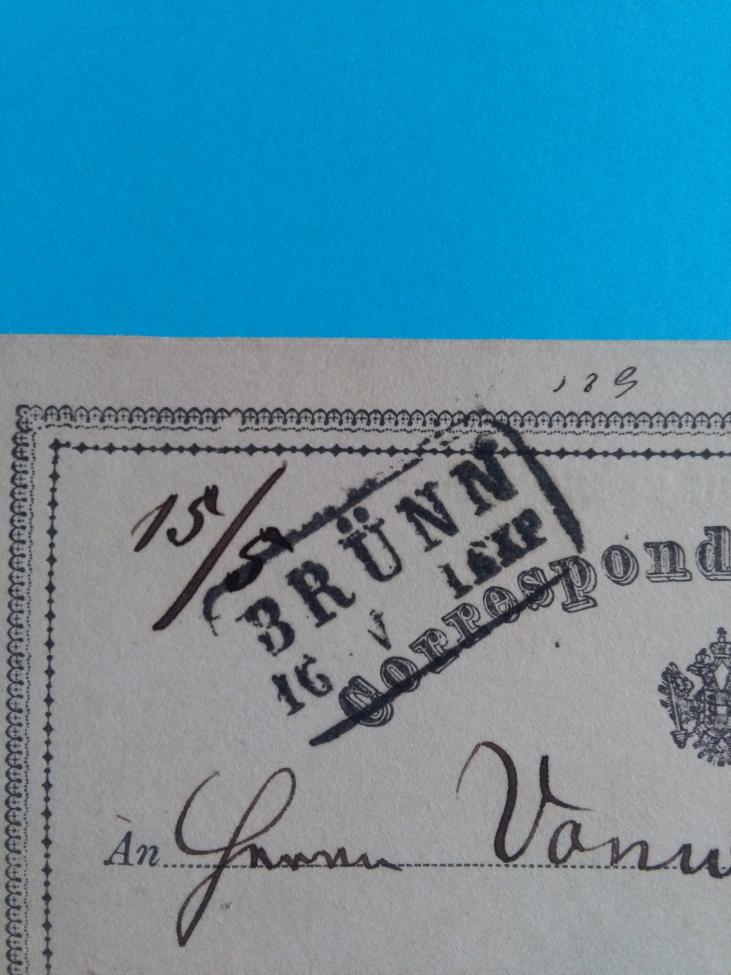 189
15/5
BRÜNN
16 V 1.EXP
Correspond
An Herrn Vonw